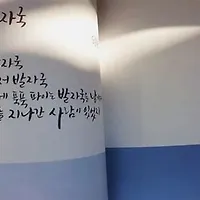 자국
자국
서 발자국
에 푹푹 파이는 발자국을 남
지나간 사람이 있었